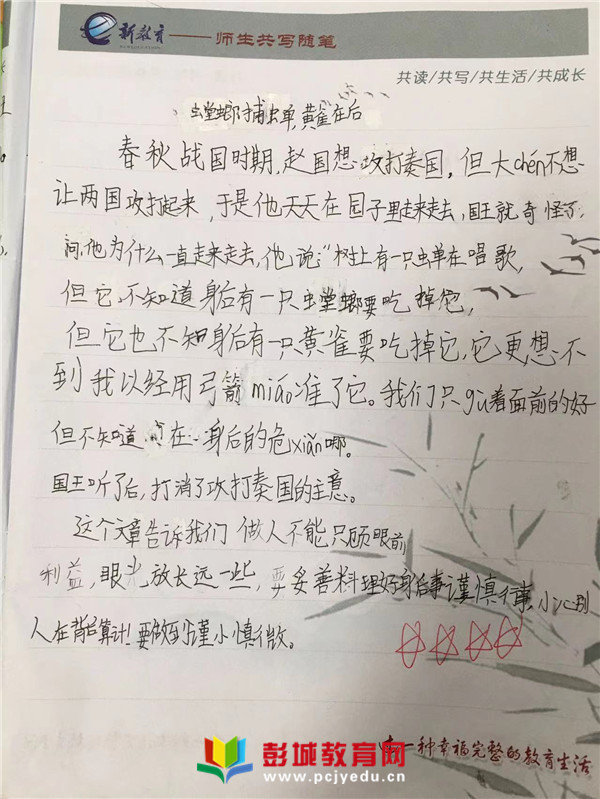 新教育——师生共写随笔
共读/共写/共生活/共成长
螳螂捕蝉,黄雀在后
春秋战国时期,赵国想攻打秦国,但大chén不想
让两国攻打起来,于是他天天在园子里走来走去,国王就奇怪了,
问,他为什么一直走来走去,他说:“树上有一只蝉在唱歌,
但它不知道身后有一只螳螂要吃掉它,
但它也不知身后有一只黄雀要吃掉它,它更想不
到我以经用弓箭miáo准了它。我们只gù着面前的好
但不知道在身后的危xiǎn哪。
国王听了后,打消了攻打秦国的主意。
这个文章告诉我们做人不能只顾眼前
利益,眼光放长远一些,要妥善料理好身后事谨慎行事,小心别
人在背后算计!要做到谨小慎微。
一种幸福完整的教育生活
彭城教育网
www.pcjyedu.cn